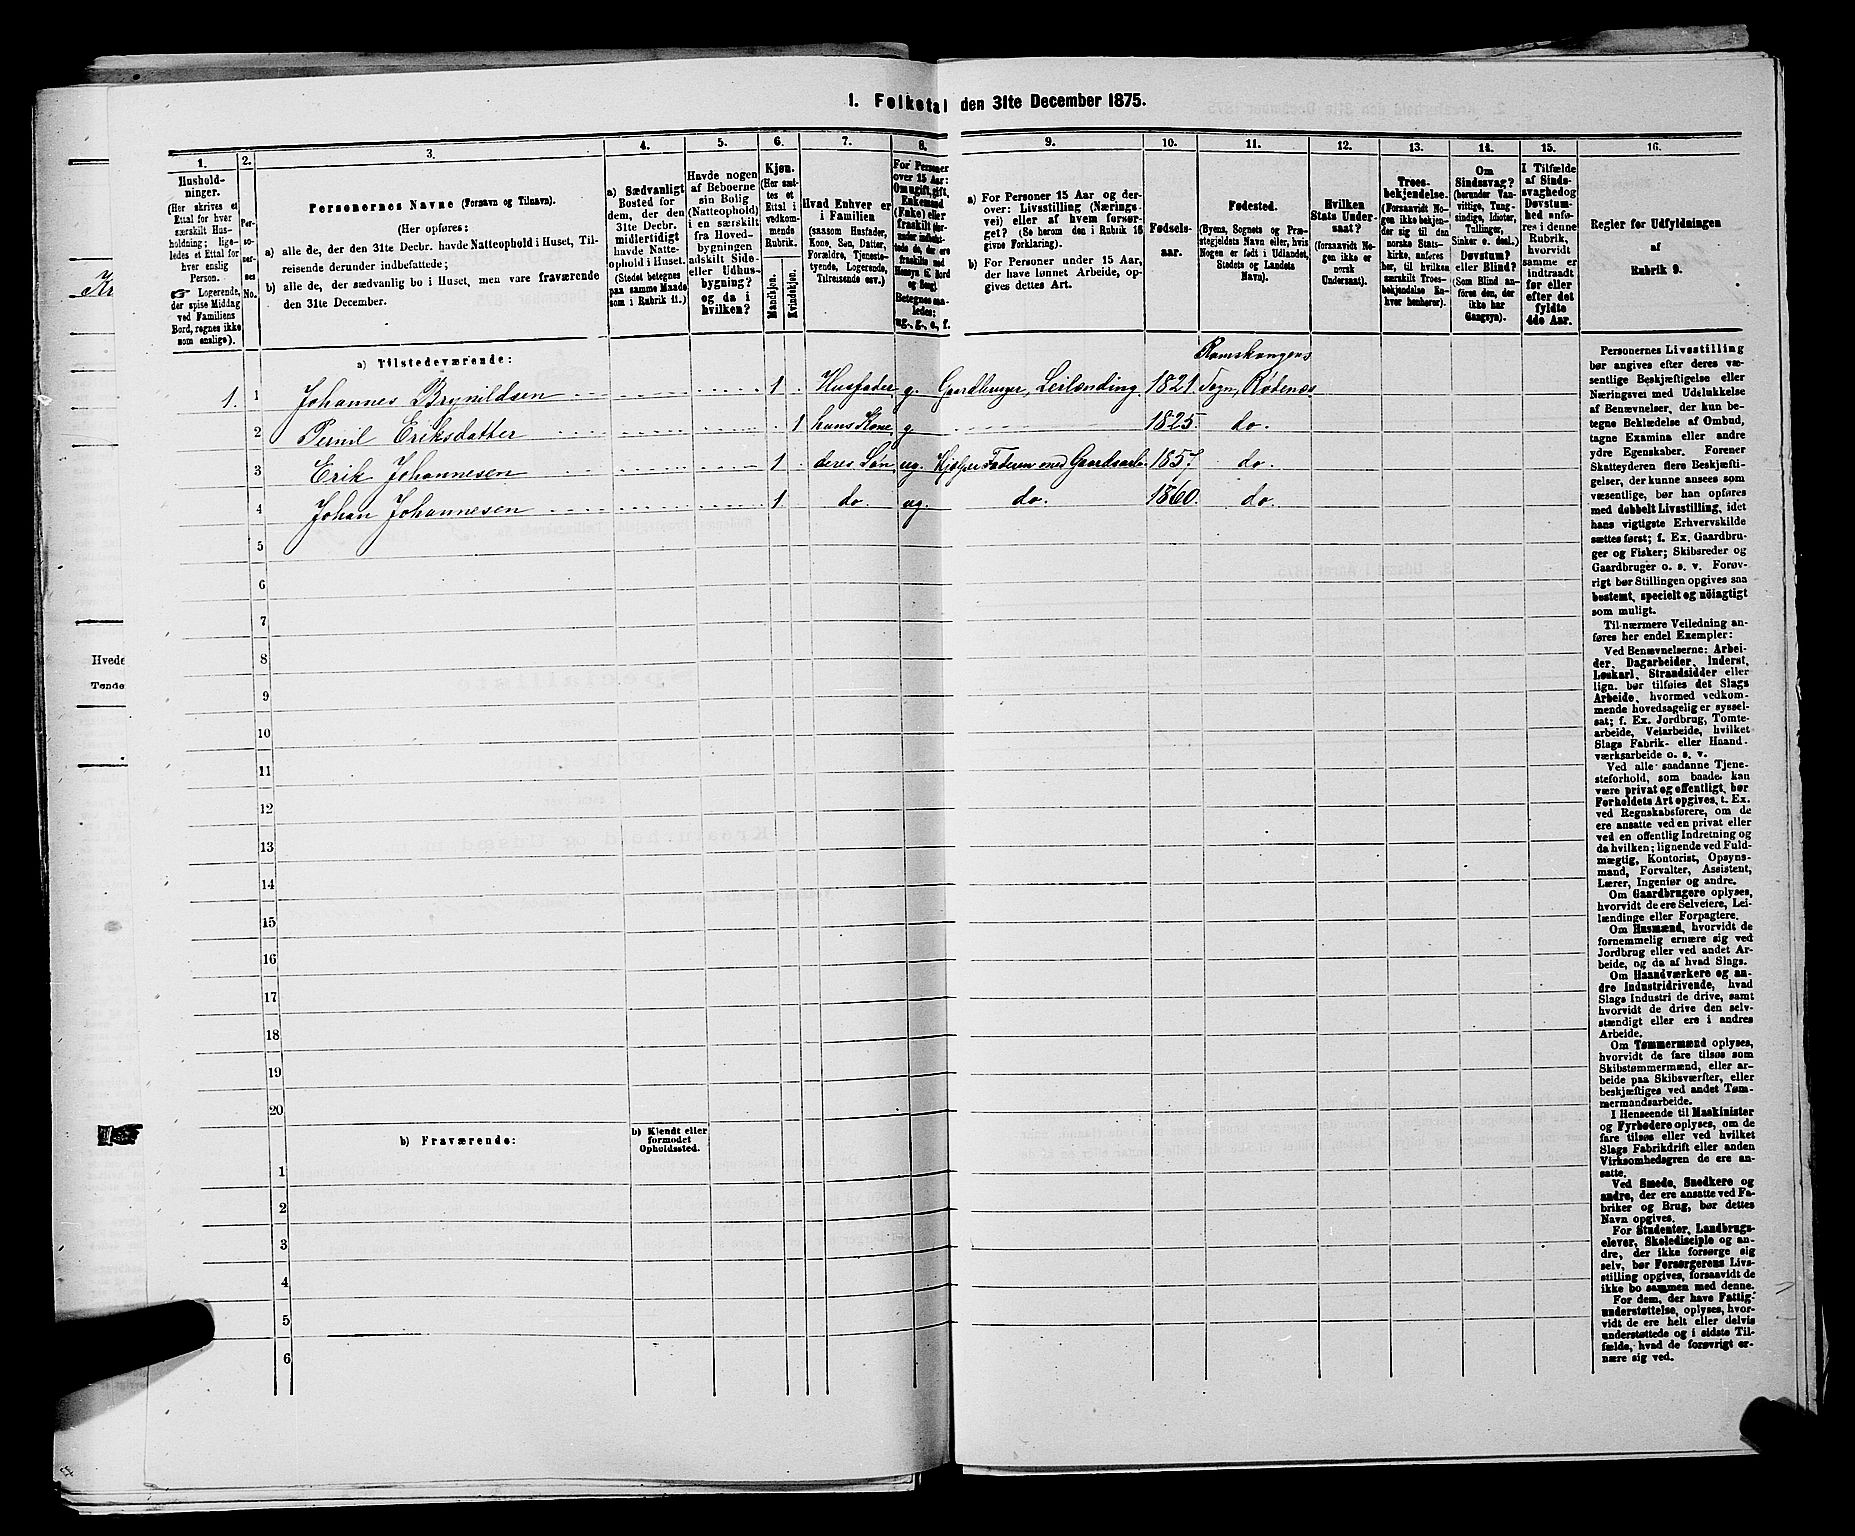 1. Folketal den 31te December 1875.
1.
2.
3.
4.
5.
6.
7.
8.
9.
10.
11.
12.
13.
14.
15.
16.
Hushold-
ninger.
(Her skrives et
Ettal for hver
særskilt Hus-
holdning; lige-
ledes et Ettal for
hver enslig
Person.
☞ Logerende,
der spise Middag
ved Familiens
Bord, regnes ikke
som enslige).
Per-
so-
ner-
nes
No.
Personernes Navne (Fornavn og Tilnavn).
(Her opføres:
a) alle de, der den 31te Decbr. havde Natteophold i Huset, Til-
reisende derunder indbefattede;
b) alle de, der sædvanlig bo i Huset, men vare fraværende
den 31te December.
a) Sædvanligt
Bosted for
dem, der den
31te Decbr.
midlertidigt
havde Natte-
ophold i Huset.
(Stedet betegnes
paa samme Maade
som i Rubrik 11.)
Havde nogen
af Beboerne
sin Bolig
(Natteophold)
i en særskilt
fra Hoved-
bygningen
adskilt Side-
eller Udhus-
bygning?
og da i
hvilken?
Kjøn.
(Her sæt-
tes et
Ettal i
vedkom-
mende
Rubrik.
Mandkjøn.
Kvindekjøn.
Hvad Enhver er
i Familien
(saasom Husfader,
Kone, Søn, Datter,
Forældre, Tjeneste-
tyende, Logerende,
Tilreisende osv.)
For Personer
over 15 Aar:
Om ugift, gift,
Enkemand
(Enke) eller
fraskilt
Betegnes saa-
ledes:
ug., g., e., f.
a) For Personer 15 Aar og der-
over: Livsstilling (Nærings-
vei) eller af hvem forsør-
get? (Se herom den i Rubrik 16
givne Forklaring).
b) For Personer under 15 Aar,
der have lønnet Arbeide, op-
gives dettes Art.
Fødsels-
aar.
Fødested.
(Byens, Sognets og Præ-
stegjeldets Navn eller, hvis
Nogen er født i Udlandet,
Stedets og Landets
Navn).
Hvilken
Stats Under-
saat?
(forsaavidt No-
gen ikke er
norsk
Undersaat).
Troes-
bekjendelse.
(Forsaavidt No-
gen ikke bekjen-
der sig til den
norske Stats-
kirke, anføres
her, til hvilken
særskilt Troes-
bekjendelse En-
hver henhører).
Om
Sindssvag?
(herunder Van-
vittige, Tung-
sindige, Idioter,
Tullinger,
Sinker o. desl.).
Døvstum?
eller Blind?
(Som Blind an-
føres den, der
ikke har
Gangsyn).
I Tilfælde
af Sinds-
svaghed og
Døvstum-
hed anfø-
res i denne
Rubrik,
hvorvidt
samme er
indtraadt
før eller
efter det
fyldte
4de Aar.
Regler for Udfyldningen
af
Rubrik 9.
a) Tilstedeværende:
Ramskougens
1. 1 Johannes Brynildsen 1 Husfader g. Gaardbruger, Leilænding 1821 Sogn, Rødenæs
2 Pernil Eriksdatter 1 hans Kone g. 1825 do.
3 Erik Johannesen 1 deres Søn ug. Hjelper Faderen med Gaardsarb. 1857 do.
4 Johan Johannesen 1 do. ug. do. 1860 do.
5
6
7
8
9
10
11
12
13
14
15
16
17
18
19
20
b) Fraværende:
b) Kjendt eller
formodet
Opholdssted.
1
2
3
4
5
6
Personernes Livsstilling
bør angives efter deres væ-
sentlige Beskjæftigelse eller
Næringsvei med Udelukkelse
af Benævnelser, der kun be-
tegne Beklædelse af Ombud,
tagne Examina eller andre
ydre Egenskaber. Forener
Skatteyderen flere Beskjæfti-
gelser, der kunne ansees som
væsentlige, bør han opføres
med dobbelt Livsstilling, idet
hans vigtigste Erhvervskilde
sættes først; f. Ex. Gaardbru-
ger og Fisker; Skibsreder og
Gaardbruger o. s. v. Forøv-
rigt bør Stillingen opgives saa
bestemt, specielt og nöiagtigt
som muligt.
Til nærmere Veiledning an-
føres her endel Exempler:
Ved Benævnelserne: Arbei-
der, Dagarbeider, Inderst,
Løskarl, Strandsidder eller
lign. bør tilføies det Slags
Arbeide, hvormed vedkom-
mende hovedsagelig er syssel-
sat; f. Ex. Jordbrug, Tomte-
arbeide, Veiarbeide, hvilket
Slags Fabrik- eller Haand-
værksarbeide o. s. v.
Ved alle saadanne Tjene-
steforhold, som baade kan
være privat og offentligt, bør
Forholdets Art opgives, t. Ex.
ved Regnskabsførere, om de
ere ansatte ved en privat eller
ved en offentlig Indretning og
da hvilken; lignende ved Fuld-
mægtig, Kontorist, Opsyns-
mand, Forvalter, Assistent,
Lærer, Ingeniør og andre.
Om Gaardbrugere oplyses,
hvorvidt de ere Selveiere, Lei-
lændinge eller Forpagtere.
Om Husmænd, hvorvidt de
fornemmelig ernære sig ved
Jordbrug eller ved andet Ar-
beide, og da af hvad Slags.
Om Haandværkere og an-
dre Industridrivende, hvad
Slags Industri de drive, samt
hvorvidt de drive den selv-
stændigt eller ere i andres
Arbeide.
Om Tømmermænd oplyses,
hvorvidt de fare tilsøs som
Skibstømmermænd, eller ar-
beide paa Skibsværfter, eller
beskjæftiges ved andet Tøm-
mermandsarbeide.
I Henseende til Maskinister
og Fyrbødere oplyses, om de
fare tilsøs eller ved hvilket
Slags Fabrikdrift eller anden
Virksomhedsgren de ere an-
satte.
Ved Smede, Snedkere og
andre, der ere ansatte ved Fa-
briker og Brug, bør dettes
Navn opgives.
For Studenter, Landbrugs-
elever, Skoledisciple og an-
dre, der ikke forsørge sig
selv, bør Forsørgerens Livs-
stilling opgives, forsaavidt de
ikke bo sammen med denne.
For dem, der have Fattig-
understøttelse, oplyses, hvor-
vidt de ere helt eller delvis
understøttede og i sidste Til-
fælde, hvad de forøvrigt er-
nære sig ved.
Hvede
Tønder